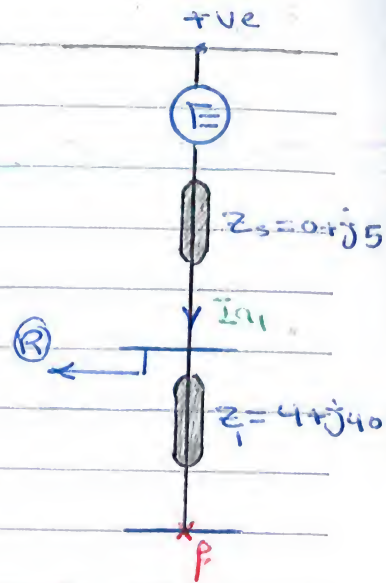 +ve
E
Zs = 0+j5
Ia1
R
Z1 = 4+j40
F